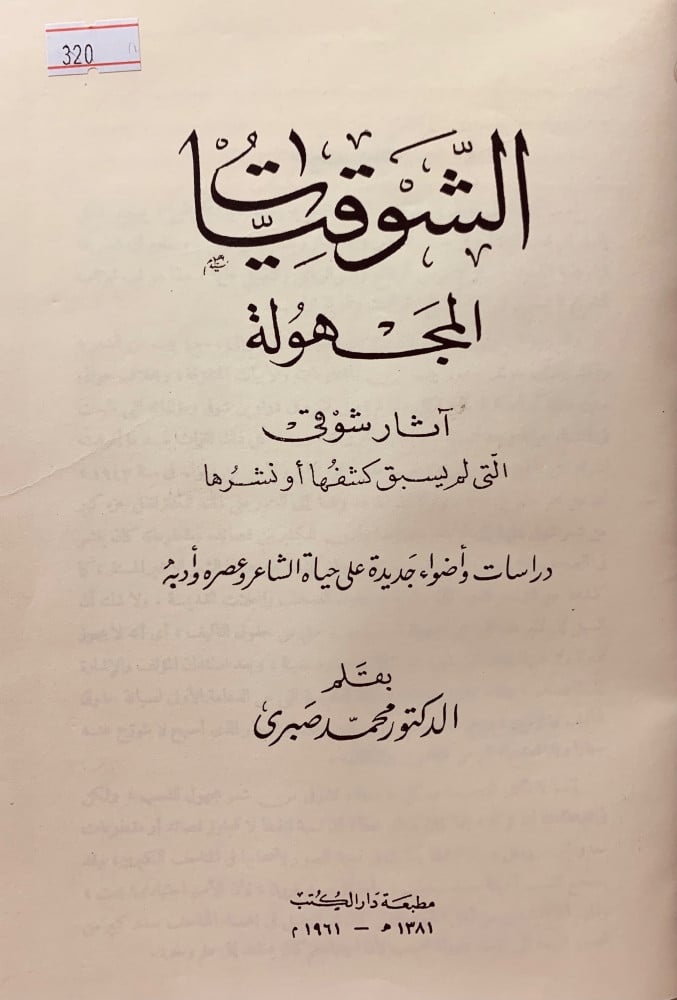 320
الشَّوْقِيَّات
المَجْهُولة
آثار شوقى
التى لم يسبق كشفُها أو نشرُها
دراسات وأضواء جَديدة على حياة الشاعر وعصره وأدبهُ
بقَلم
الدكتور محمّد صَبرى
مطبعَة دَار الكُتبُ
١٣٨١ هـ – ١٩٦١ م